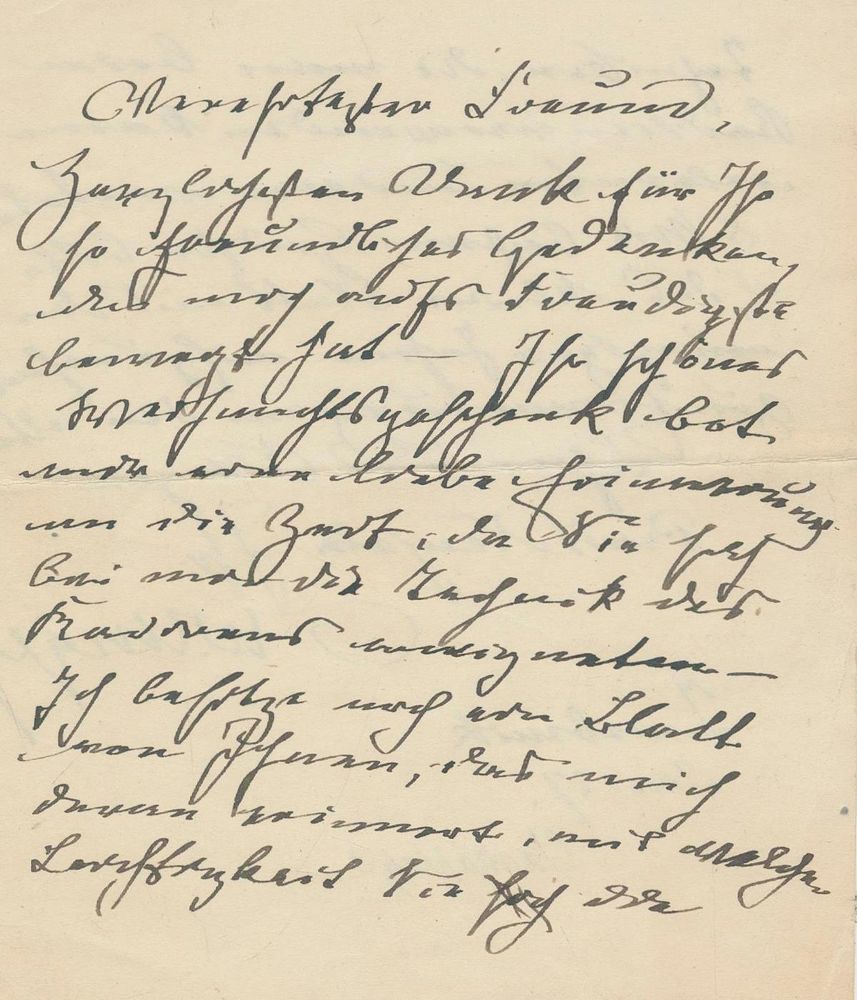 Verehrtester Freund,
Herzlichsten Dank für Ihr
so freundliches Gedenken,
das mich aufs Freudigste
bewegt hat — Ihr schönes
Weihnachtsgeschenk bot
mir eine liebe Erinnerung
an die Zeit, da Sie sich
bei mir die Technik des
Radirens aneigneten —
Ich besitze noch ein Blatt
von Ihnen, das mich
daran erinnert, mit welcher
Leichtigkeit Sie sich die